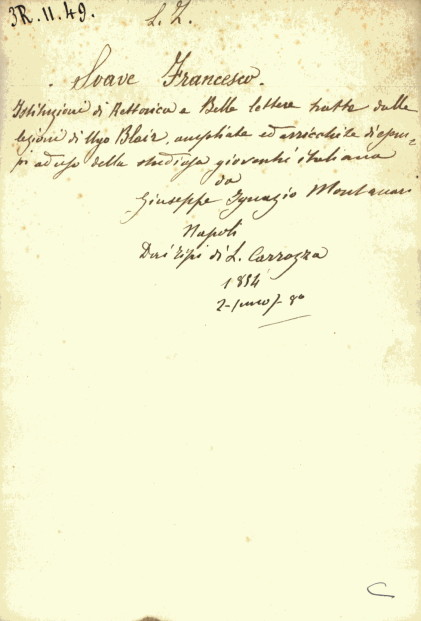 3R. 11. 49.
L. Z.
Soave Francesco.
Istituzioni di Rettorica e Belle lettere tratte dalle
lezioni di Ugo Blair, ampliate ed arricchite di esem=
pi ad uso della studiosa gioventù italiana
da
Giuseppe Ignazio Montanari
Napoli
Dai tipi di L. Carrozza
1854
8º
C